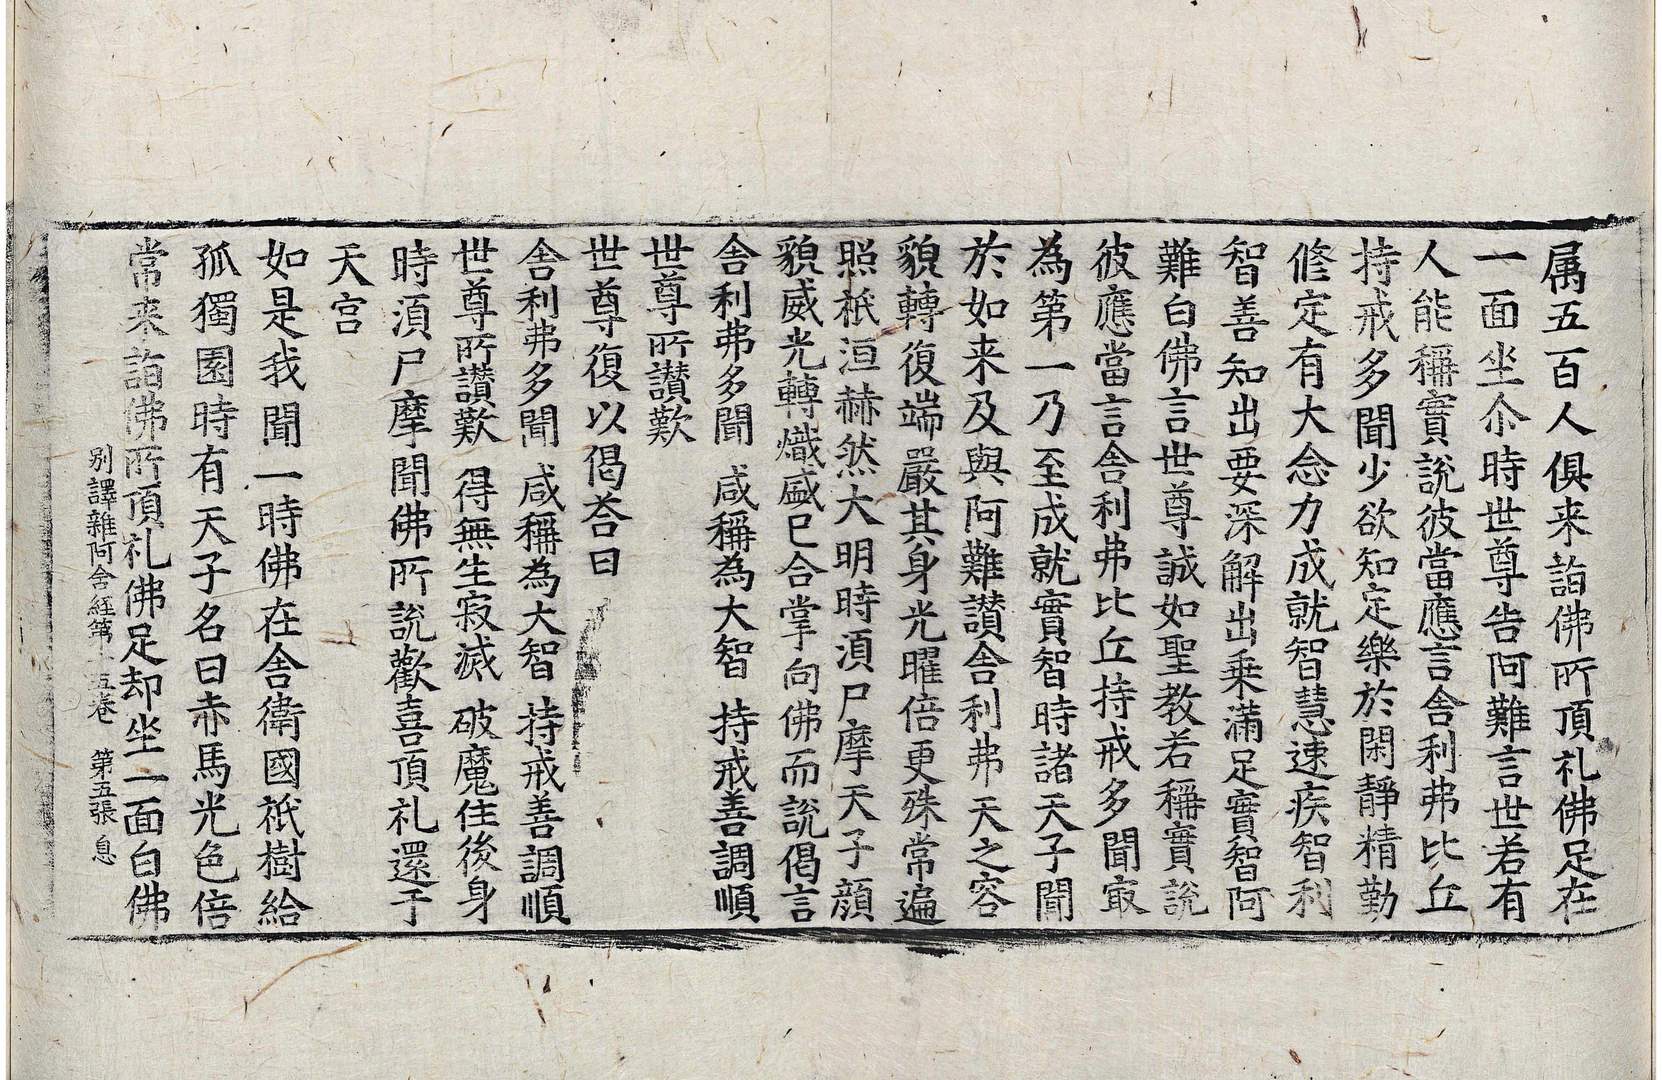 属五百人俱来詣佛所頂礼佛足在
一面坐尒時世尊告阿難言世若有
人能稱實說彼當應言舍利弗比丘
持戒多聞少欲知定樂於閑靜精勤
修定有大念力成就智慧速疾智利
智善知出要深解出乗滿足實智阿
難白佛言世尊誠如聖教若稱實說
彼應當言舍利弗比丘持戒多聞㝡
為第一乃至成就實智時諸天子聞
於如来及與阿難讃舍利弗天之容
貌轉復端嚴其身光曜倍更殊常遍
照祇洹赫然大明時湏尸摩天子顔
貌威光轉熾盛已合掌向佛而說偈言
舍利弗多聞 咸稱為大智 持戒善調順
世尊所讃歎
世尊復以偈荅曰
舍利弗多聞 咸稱為大智 持戒善調順
世尊所讃歎 得無生寂滅 破魔住後身
時湏尸摩聞佛所說歡喜頂礼還于
天宮
如是我聞一時佛在舍衛國祇樹給
孤獨園時有天子名曰赤馬光色倍
常来詣佛所頂礼佛足却坐一面白佛
別譯雜阿含經第十五卷 第五張 息